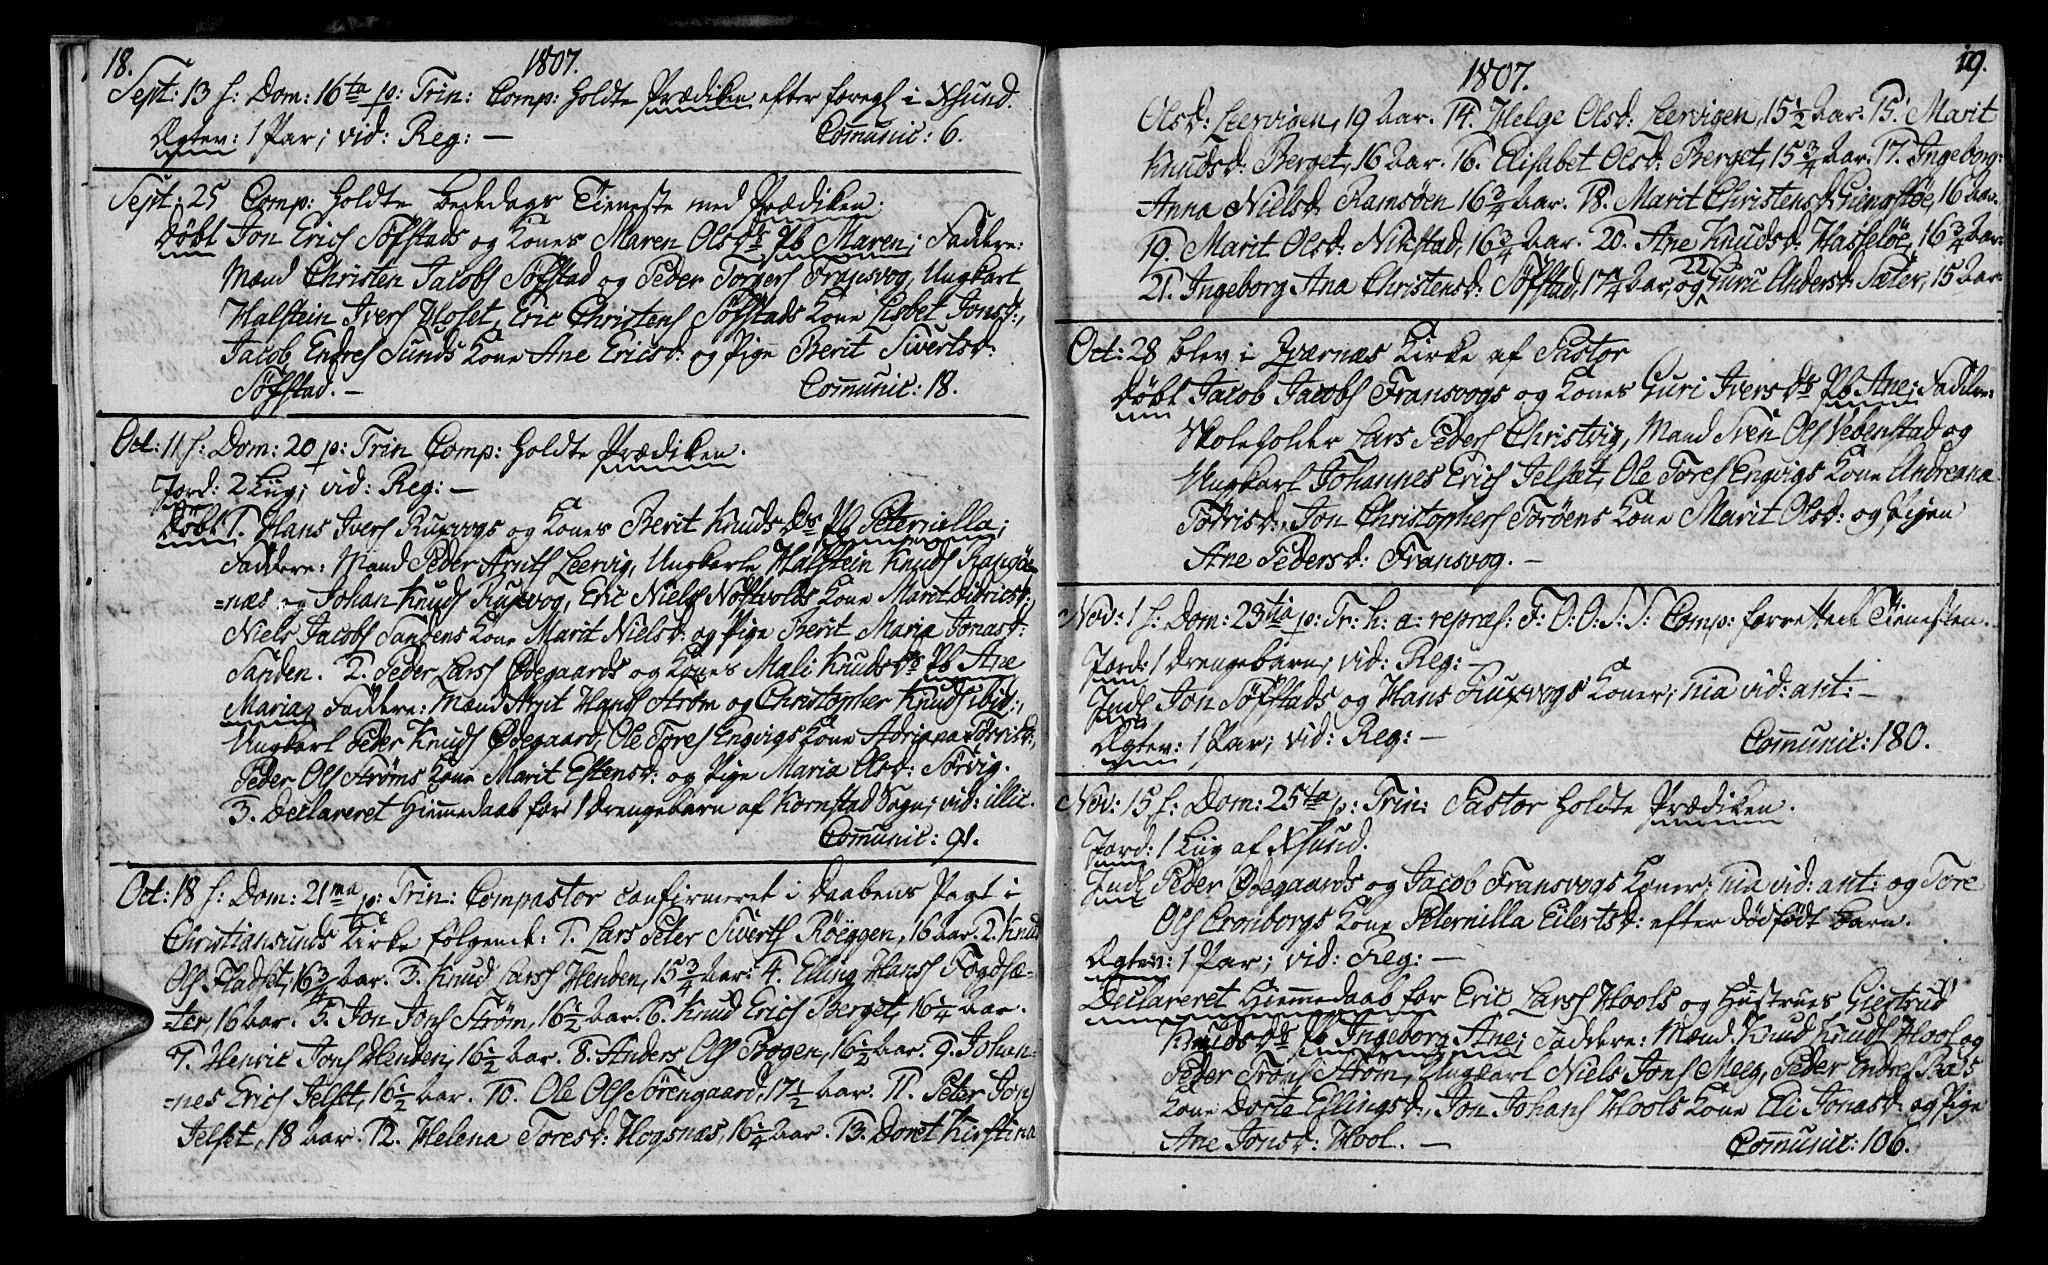 18.
1807.
Sept: 13 f: Dom: 16ta p: Trin: Comp: holdte Prædiken efter foregl i Xsund.
Ægtev: 1 Par; vid: Reg: —
Comunic: 6.
Sept: 25 Comp: holdte Bededags Tieneste med Prædiken.
Döbt Jon Erics Söfstads og Kones Maren Olsds Pb Maren; Faddere:
Mænd Christen Jacobs Söfstad og Peder Torgers Fransvog, Ungkarl
Halstein Ivers Hoset, Eric Christens Söfstads Kone Lisbet Jonsd:,
Jacob Endres Sunds Kone Ane Ericsd: og Pige Berit Sivertsd:
Söfstad. —
Comunic: 18.
Oct: 11 f: Dom: 20 p: Trin Comp: holdte Prædiken.
Jord: 2 Liig; vid: Reg: —
Döbt 1. Hans Ivers Ruxvogs og Kones Berit Knuds Ds Pb Peternilla;
Faddere: Mand Peder Arnts Leervig, Ungkarle Halstein Knuds Ramsöe
=næs og Johan Knuds Ruxvog, Eric Niels Nöstvolds Kone Marit Didricsd:,
Niels Jacobs Sandens Kone Marit Nielsd: og Pige Berit Maria Jonasd:
Sanden. 2. Peder Lars Ödegaards og Kones Mali Knudsds Pb Ane
Maria; Faddere: Mænd Arnt Hans Ström og Christopher Knuds ibid:,
Ungkarl Peder Knuds Ödegaard, Ole Tores Engvigs Kone Adriana Törrisd:,
Peder Ols Ströms Kone Marit Estensd: og Pige Maria Olsd: Törvig.
3. Declareret Hiemmedaab for 1 Drengebarn af Kornstad Sogn; vid: illic.
Comunic: 91.
Oct: 18 f: Dom: 21ma p: Trin: Compastor confirmeret i Daabens Pagt i
Christiansunds Kirke fölgende: 1. Lars Peter Siverts Röeggen, 16 Aar. 2. Knud
Ols Fladset, 16 3/4 Aar. 3. Knud Larss Henden, 15 3/4 Aar. 4. Elling Hans Fogdsæ=
=ter, 16 Aar. 5. Jon Jons Ström, 16 1/2 Aar. 6. Knud Erics Berget, 16 1/4 Aar.
7. Henric Jons Henden, 16 1/2 Aar. 8. Anders Ols Bogen, 16 1/2 Aar. 9. Johan=
=nes Erics Jelset, 16 1/2 Aar. 10. Ole Ols Sörengaard, 17 1/2 Aar. 11. Peter Jons
Jelset, 18 Aar. 12. Helena Toresd: Hogsnæs, 16 1/4 Aar. 13. Doret Kirstina
19.
1807.
Olsd: Leervigen, 19 Aar. 14. Helge Olsd: Leervigen, 15 1/2 Aar. 15. Marit
Knudsd: Berget, 16 Aar. 16. Elisabet Olsd: Berget, 15 3/4 Aar. 17. Ingeborg
Anna Nielsd: Ramsöen 16 3/4 Aar. 18. Marit Christensd: 16 Aar.
19. Marit Olsd: Nikstad, 16 3/4 Aar. 20. Ane Knudsd: Hasselöe, 16 3/4 Aar.
21. Ingeborg Ana Christensd: Söfstad, 17 1/4 Aar, og 22 Guru Andersd: Sæter, 15 Aar
Oct: 28 blev i Qværnæs Kirke af Pastor
Döbt Jacob Jacobs Fransvogs og Kones Guri Ivers Ds Pb Ane; Faddere:
Skoleholder Lars Peders Christvig, Mand Sven Ols Vebenstad og
Ungkarl Johannes Erics Jelset, Ole Tores Engvigs Kone Andreana
Törrisd:, Jon Christophers Toröens Kone Marit Olsd: og Pigen
Ane Pedersd: Fransvog. —
Nov: 1 f: Dom: 23tia p: Tr: h: a: repræs: F: O: O: S: S: Comp: forrettede Tienesten.
Jord: 1 Drengebarn; vid: Reg: —
Indl Jon Söfstads og Hans Ruxvogs Koner; qvia vid: ant: —
Ægtev: 1 Par; vid: Reg: —
Comunic: 180.
Nov: 15 f: Dom: 25ta p: Trin: Pastor holdte Prædiken.
Jord: 1 Liig af Xsund.
Indl Peder Ödegaards og Jacob Fransvogs Koner; qvia vid: ant: og Tore
Ols Cronborgs Kone Peternilla Eilertsd: efter dödfödt Barn.
Ægtev: 1 Par; vid: Reg: —
Declareret Hiemmedaab for Eric Larss Hools og Hustrues Giertrud
Knudsds Pb Ingeborg Ane; Faddere: Mænd Knud Knuds Hool og
Peder Trons Ström, Ungkarl Niels Jons Meeg, Peder Endres Bass
Kone Dorte Ellingsd:, Jon Johans Hools Kone Eli Jonasd: og Pige
Ane Jonsd: Hool. —
Comunic: 106.